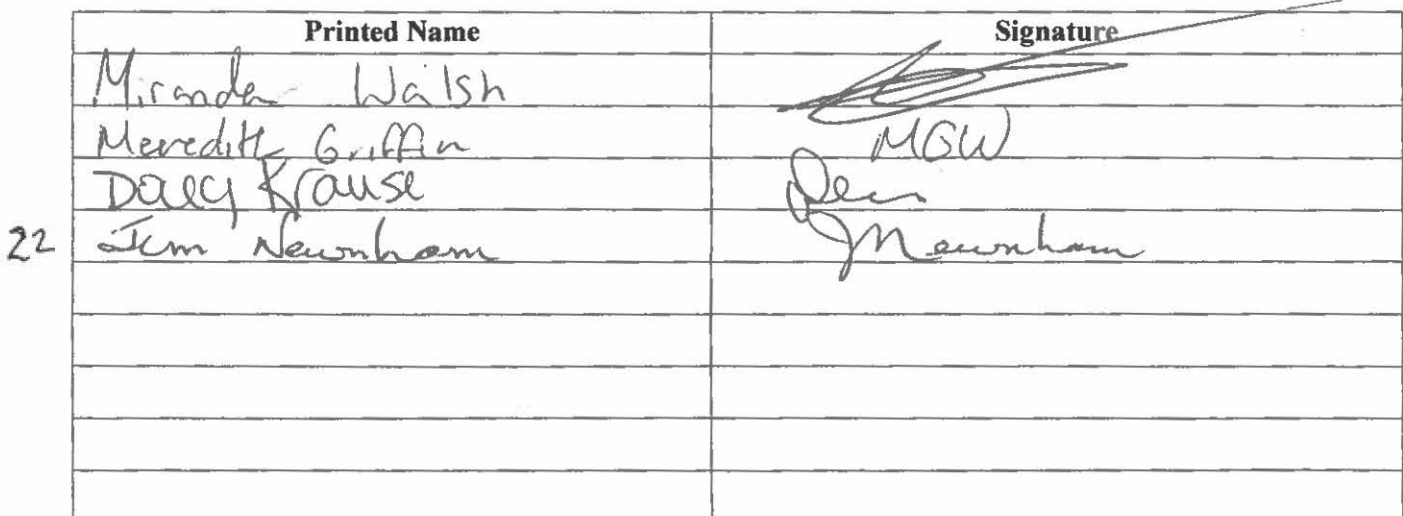 Printed Name Signature
Miranda Walsh
Meredith Griffin MGW
Krause
22 Jim Newnham JNewnham